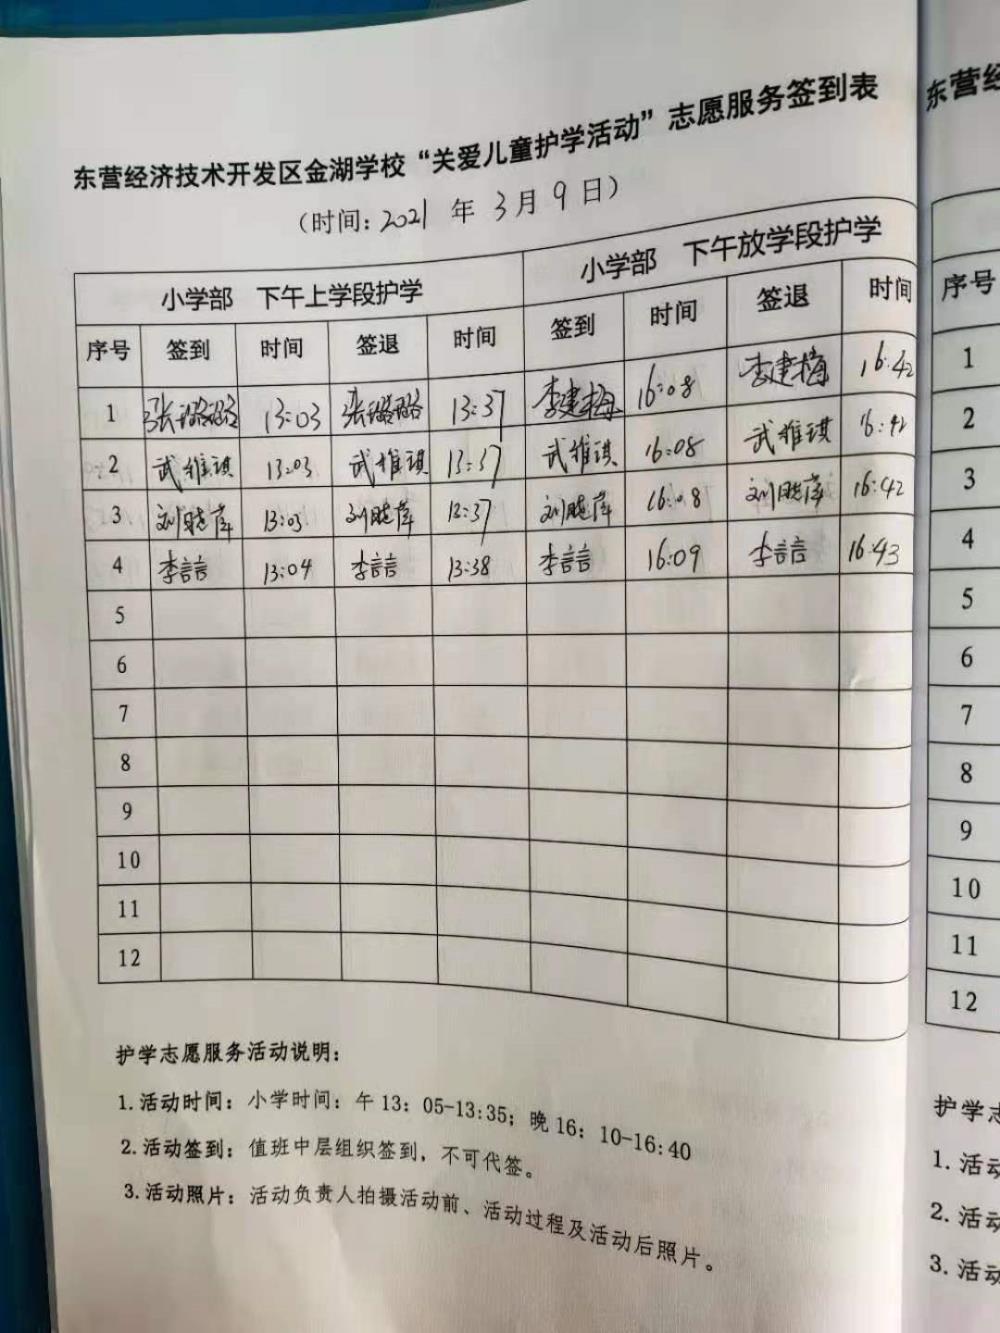 东营经济技术开发区金湖学校“关爱儿童护学活动”志愿服务签到表
(时间:2021 年 3月 9 日)
小学部 下午上学段护学 小学部 下午放学段护学
序号 签到 时间 签退 时间 签到 时间 签退 时间
1 张璐璐 13:03 张璐璐 13:37 李建梅 16:08 李建梅 16:42
2 武雅琪 13:03 武雅琪 13:37 武雅琪 16:08 武雅琪 16:42
3 刘晓萍 13:03 刘晓萍 13:37 刘晓萍 16:08 刘晓萍 16:42
4 李言言 13:04 李言言 13:38 李言言 16:09 李言言 16:43
5
6
7
8
9
10
11
12
护学志愿服务活动说明:
1.活动时间:小学时间:午 13:05-13:35;晚 16:10-16:40
2.活动签到:值班中层组织签到,不可代签。
3.活动照片:活动负责人拍摄活动前、活动过程及活动后照片。
东营经
序号
1
2
3
4
5
6
7
8
9
10
11
12
护学志
1.活动
2.活动
3.活动